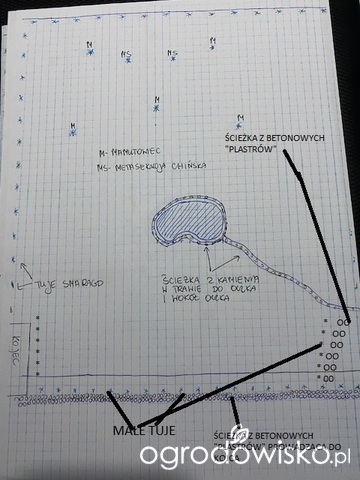 M
M
MS
MS
M
M
M
M- MAMUTOWIEC
MS- METASEKWOJA CHIŃSKA
ŚCIEŻKA Z BETONOWYCH
"PLASTRÓW"
TUJE SMARAGD
ŚCIEŻKA Z KAMIENIA
W TRAWIE DO OCZKA
I WOKÓŁ OCZKA
KOJEC
MAŁE TUJE
ŚCIEŻKA Z BETONOWYCH
"PLASTRÓW" PROWADZĄCA DO
KOJCA
ogrodowisko.pl